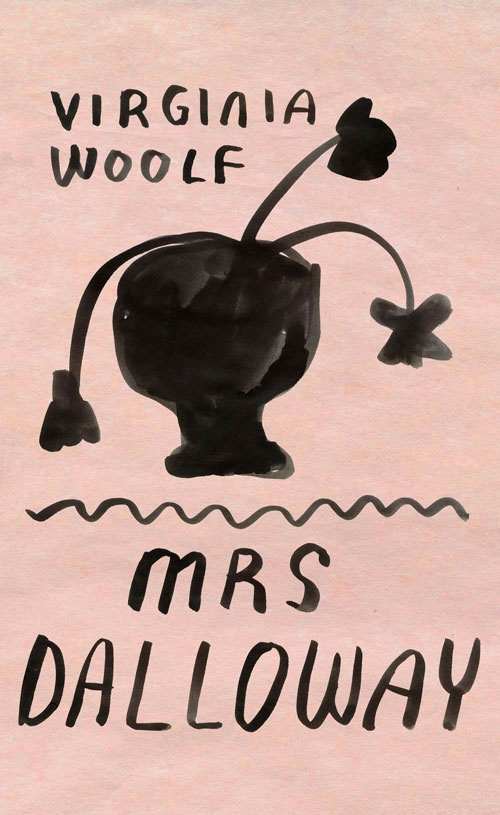 VIRGINIA
WOOLF
MRS
DALLOWAY